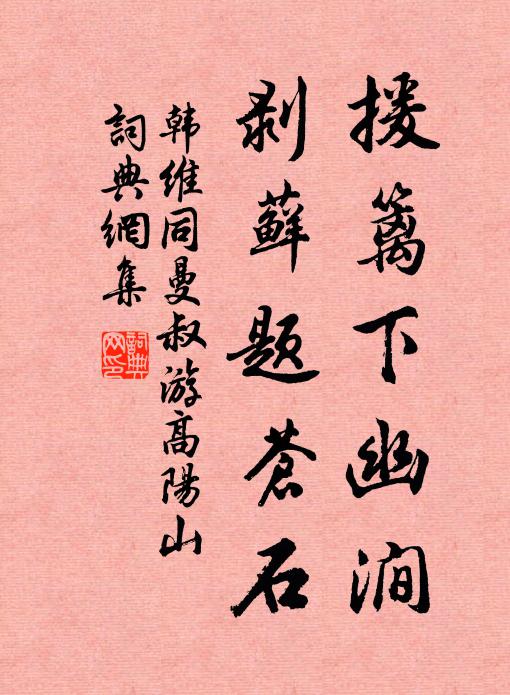 援篱下幽涧
剥藓题苍石
韩维同曼叔游高陽山
詞典網集
詞典
网印